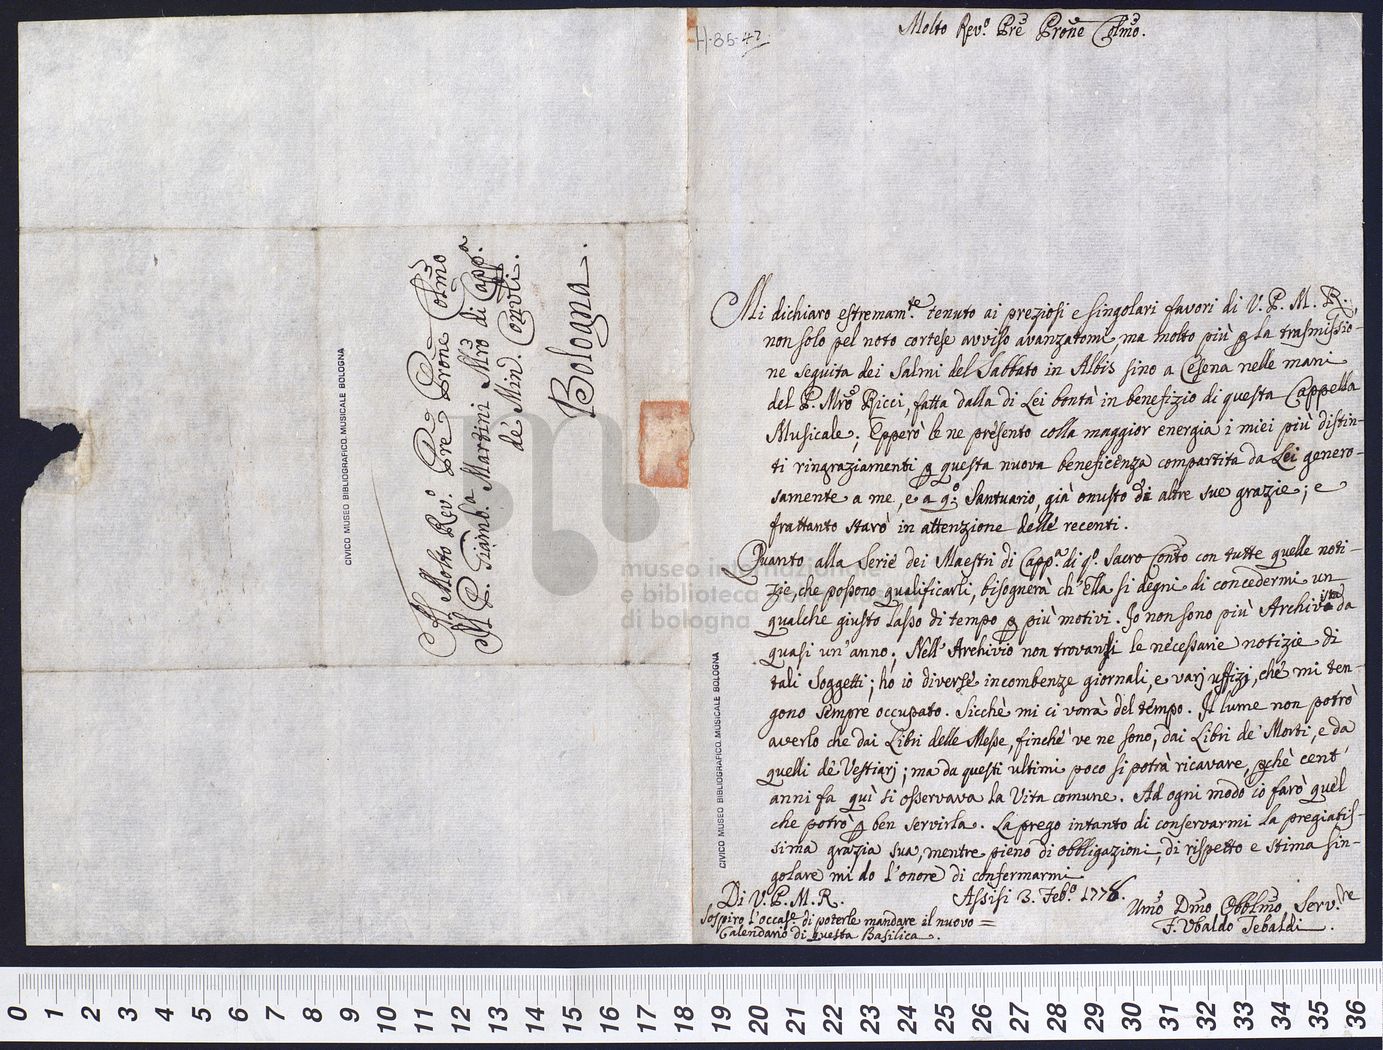 H.85.42.
Molto Rev.º Prẽ Prõne Colmõ.
Mi dichiaro estremam.te tenuto ai preziosi e singolari favori di V. P. M. R.,
non solo pel noto cortese avviso avanzatomi, ma molto più p la trasmissio-
ne seguita dei Salmi del Sabbato in Albis sino a Cesena nelle mani
del P. Mrõ Ricci, fatta dalla di Lei bontà in benefizio di questa Cappella
Musicale; Epperò le ne presento colla maggior energia i miei più distin-
ti ringraziamenti p questa nuova beneficenza compartita da Lei genero-
samente a me, e a q.º Santuario, già onusto di altre sue grazie; e
frattanto starò in attenzione delle recenti.
Quanto alla Serie dei Maestri di Capp.a di q.º Sacro Conto con tutte quelle noti-
zie, che possono qualificarli, bisognerà ch'ella si degni di concedermi un
qualche giusto lasso di tempo p più motivi. Io non sono più Archivista da
quasi un'anno; Nell'Archivio non trovansi le necessarie notizie di
tali Soggetti; ho io diverse incombenze giornali, e varj uffizj, che mi ten-
gono sempre occupato. Sicchè mi ci vorrà del tempo. Il lume non potrò
averlo che dai Libri delle Messe, finchè ve ne sono, dai Libri de' Morti, e da
quelli de' Vestiarj; ma da questi ultimi poco si potrà ricavare, pchè cent'
anni fa quì si osservava la Vita comune. Ad ogni modo io farò quel
che potrò p ben servirla. La prego intanto di conservarmi la pregiatis-
sima grazia sua, mentre pieno di obbligazioni, di rispetto e stima sin-
golare mi do l'onore di confermarmi
Di V. P. M. R. Assisi 3. Feb.º 1778.
Umõ Dmõ Obblmõ Serv.re
F. Ubaldo Tebaldi.
Sospiro l'occas.e di poterle mandare il nuovo =
Calendario di questa Basilica.
Al Molto Rev.º Prẽ Prõne Colmõ
Il P. Giamb.a Martini Mrõ di Capp.a
de' Min. Convli.
Bologna.
CIVICO MUSEO BIBLIOGRAFICO MUSICALE BOLOGNA
CIVICO MUSEO BIBLIOGRAFICO MUSICALE BOLOGNA
museo internazionale
e biblioteca della musica
di bologna
0 1 2 3 4 5 6 7 8 9 10 11 12 13 14 15 16 17 18 19 20 21 22 23 24 25 26 27 28 29 30 31 32 33 34 35 36